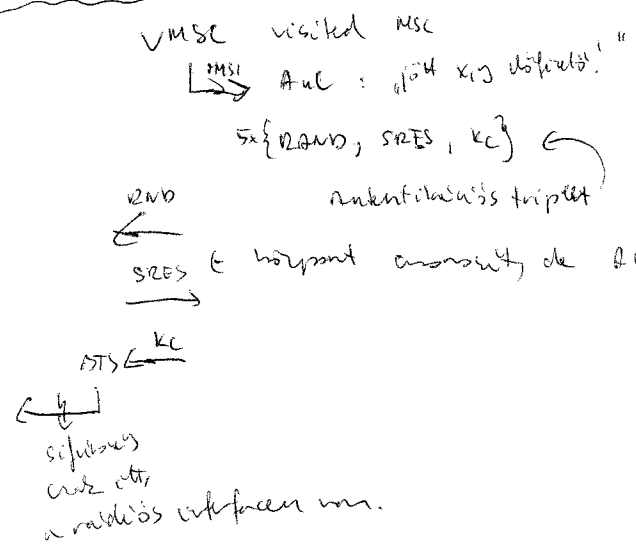 VMSC visited MSC
IMSI
AuC : „jött x,y előfizető!"
5x{RAND, SRES, Kc}
Autentikációs triplet
RND
SRES ← központ azonosít, de
Kc
BTS
csak itt,
a rádiós interfacen van.